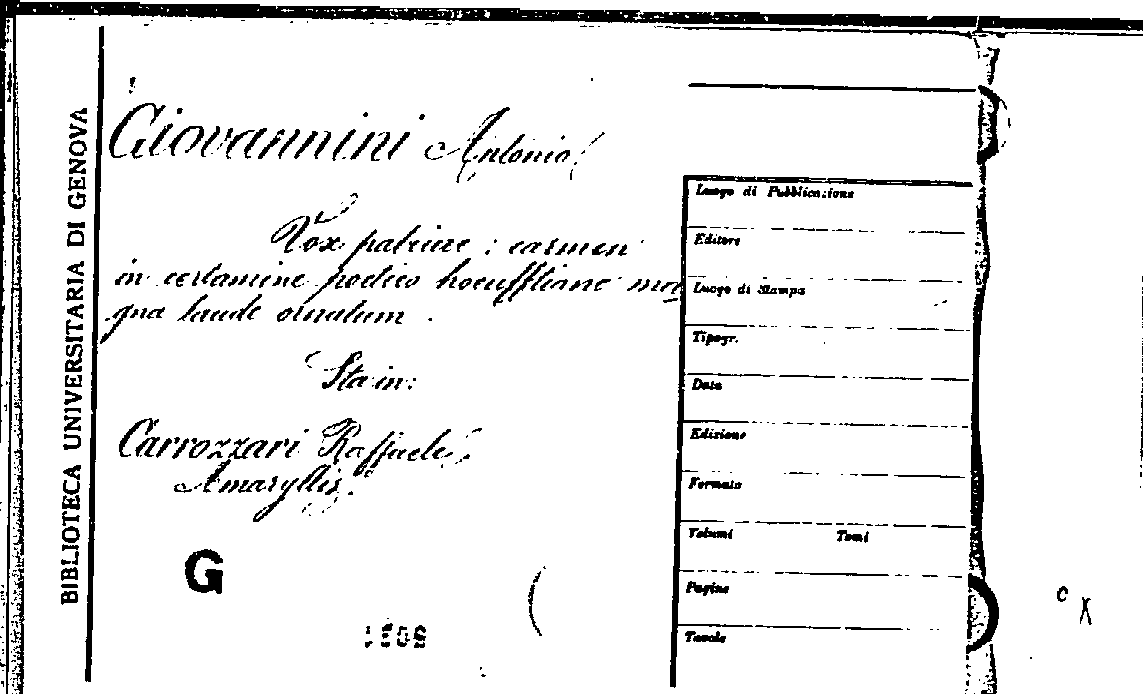 BIBLIOTECA UNIVERSITARIA DI GENOVA
Giovannini Antonio
Vox patriae : carmen
in certamine poetico hoeufftiano ma
gna laude ornatum .
Sta in:
Carrozzari Raffaele
Amaryllis.
G
Luogo di Pubblicazione
Editore
Luogo di Stampa
Tipogr.
Data
Edizione
Formato
Volumi Tomi
Pagine
Tavole